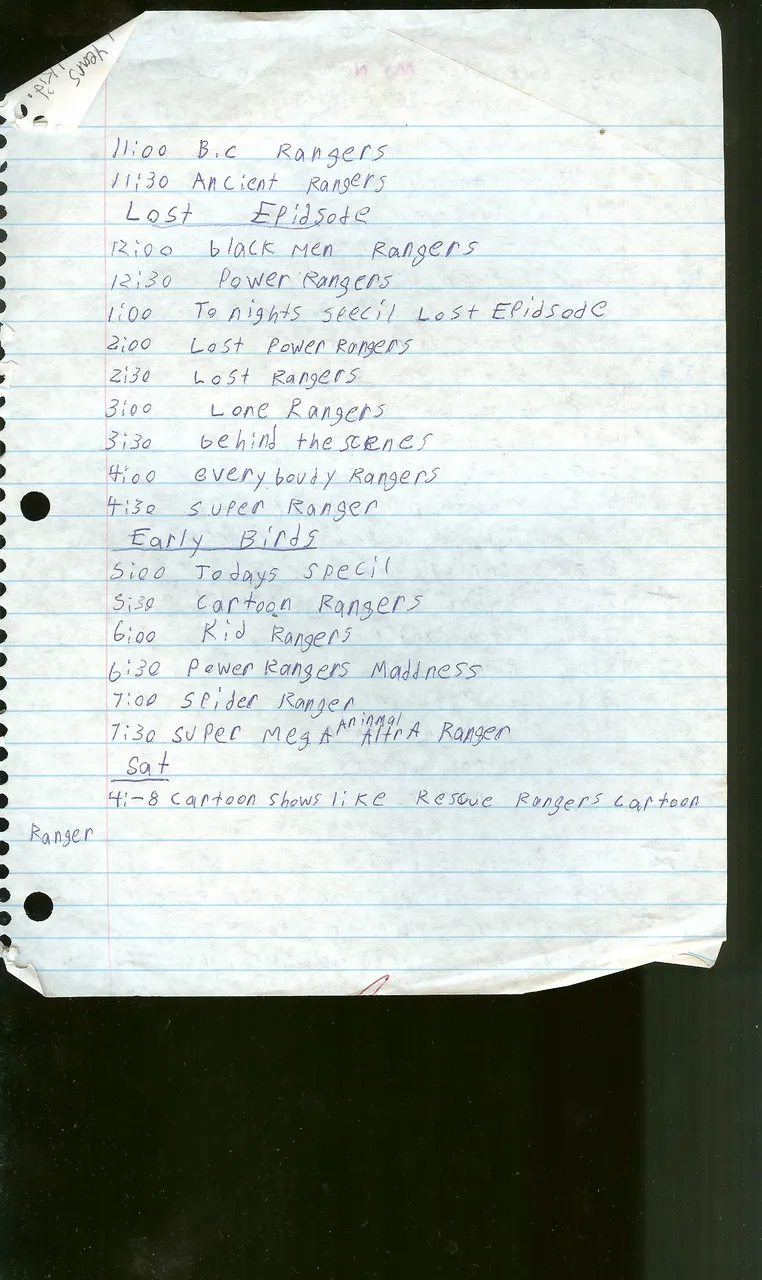 years
Kid.
11:00 B.C Rangers
11:30 Ancient Rangers
Lost Epidsode
12:00 black men Rangers
12:30 Power Rangers
1:00 To nights specil Lost Epidsode
2:00 Lost Power Rangers
2:30 Lost Rangers
3:00 Lone Rangers
3:30 behind the scenes
4:00 every boudy Rangers
4:30 super Ranger
Early Birds
5:00 Todays specil
5:30 Cartoon Rangers
6:00 Kid Rangers
6:30 Power Rangers Maddness
7:00 Spider Ranger
7:30 super MegA Aninmal AltrA Ranger
Sat
4:-8 Cartoon shows like Rescue Rangers Cartoon
Ranger